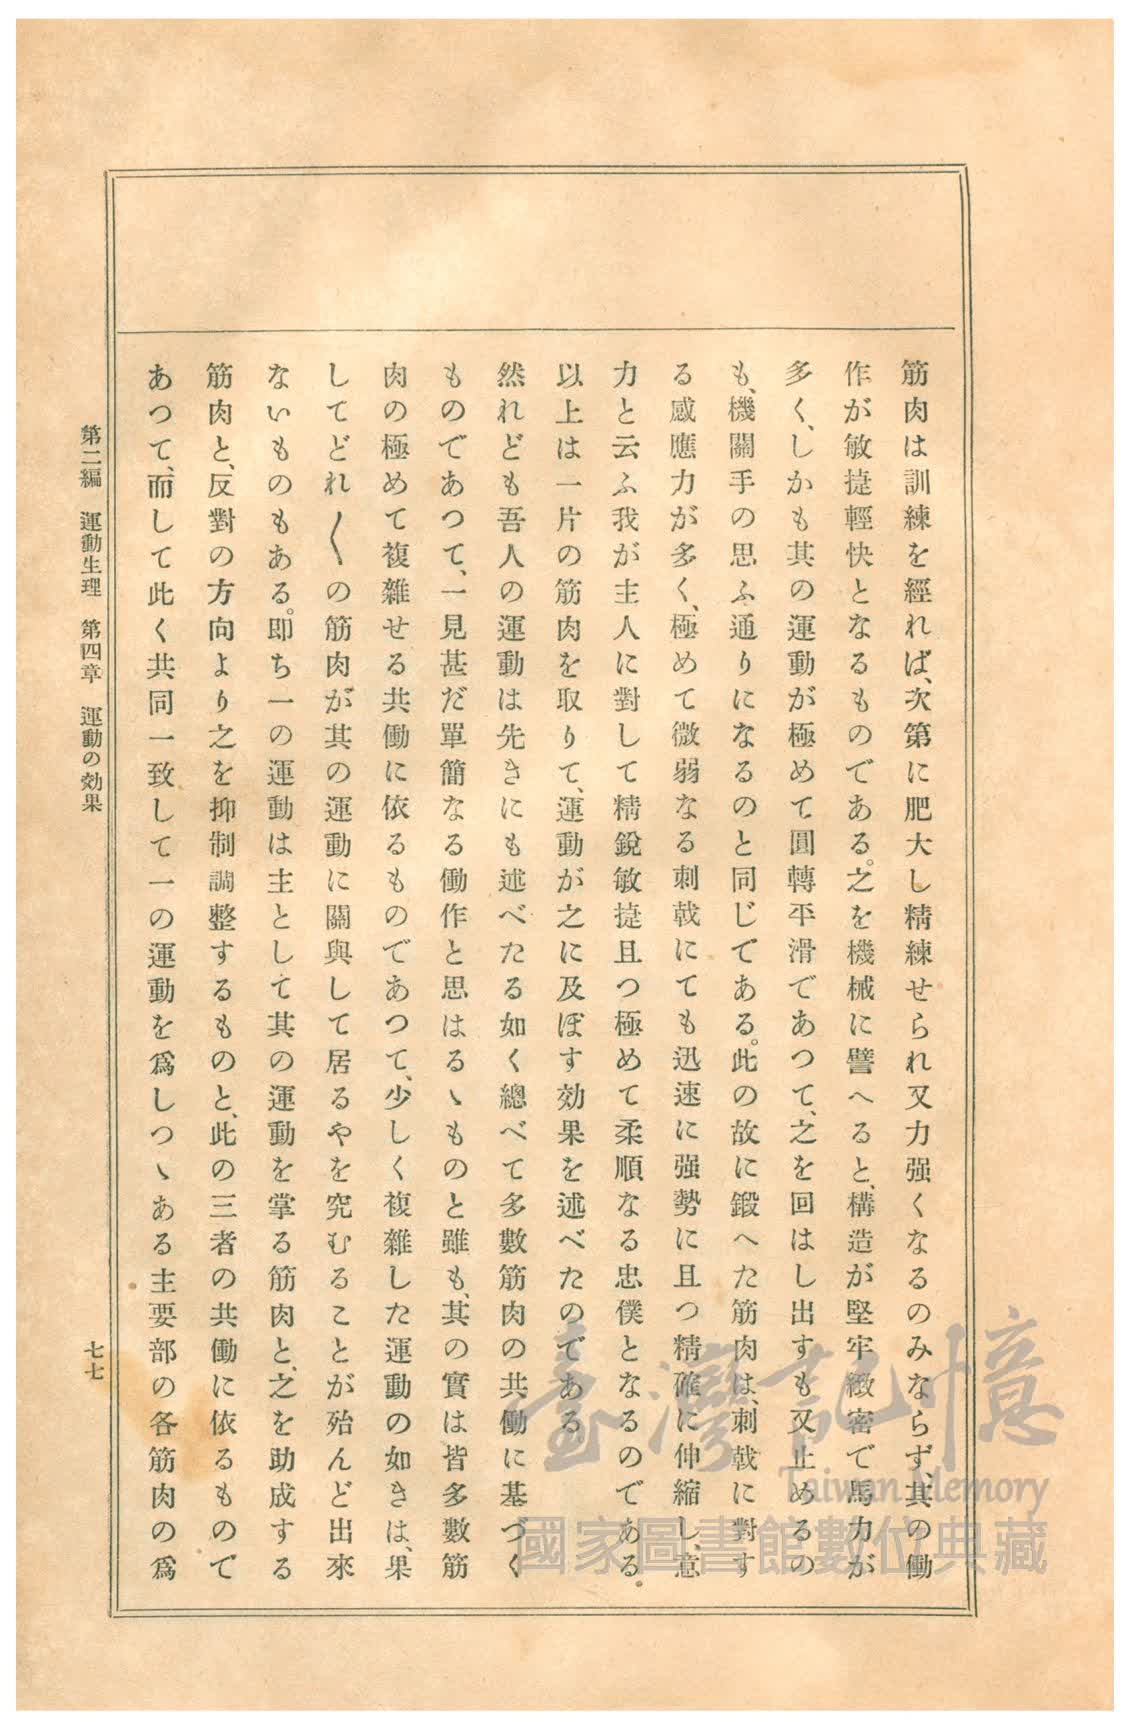 筋肉は訓練を經れば、次第に肥大し精練せられ又力强くなるのみならず、其の働
作が敏捷輕快となるものである。之を機械に譬へると、構造が堅牢緻密で馬力が
多く、しかも其の運動が極めて圓轉平滑であつて、之を回はし出すも又止めるの
も、機關手の思ふ通りになるのと同じである。此の故に鍛へた筋肉は、刺戟に對す
る感應力が多く、極めて微弱なる刺戟にても迅速に强勢に且つ精確に伸縮し、意
力と云ふ我が主人に對して精銳敏捷且つ極めて柔順なる忠僕となるのである。
以上は一片の筋肉を取りて、運動が之に及ぼす効果を述べたのである。
然れども吾人の運動は先きにも述べたる如く總べて多數筋肉の共働に基づく
ものであつて、一見甚だ單簡なる働作と思はるゝものと雖も、其の實は皆多數筋
肉の極めて複雜せる共働に依るものであつて、少しく複雜した運動の如きは、果
してどれ〱の筋肉が其の運動に關與して居るやを究むることが殆んど出來
ないものもある。卽ち一の運動は主として其の運動を掌る筋肉と、之を助成する
筋肉と、反對の方向より之を抑制調整するものと、此の三者の共働に依るもので
あつて、而して此く共同一致して一の運動を爲しつゝある主要部の各筋肉の爲
第二編 運動生理 第四章 運動の効果
七七
臺灣記憶
Taiwan Memory
國家圖書館數位典藏